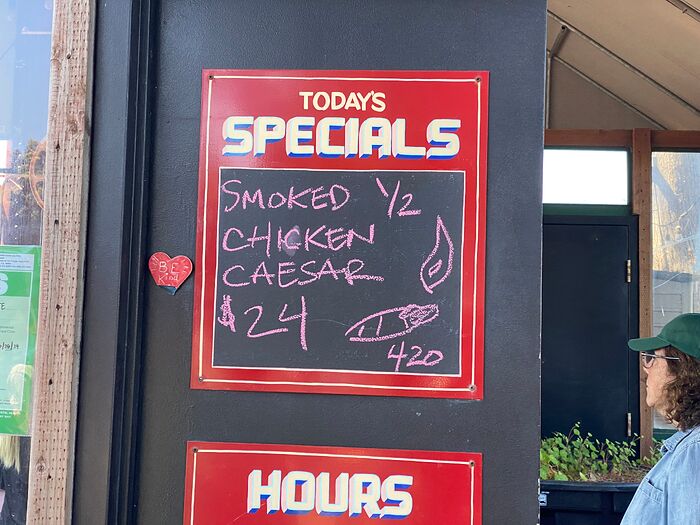 TODAY'S
SPECIALS
SMOKED ½
CHICKEN
CAESAR
$24
420
BE
Kind
HOURS